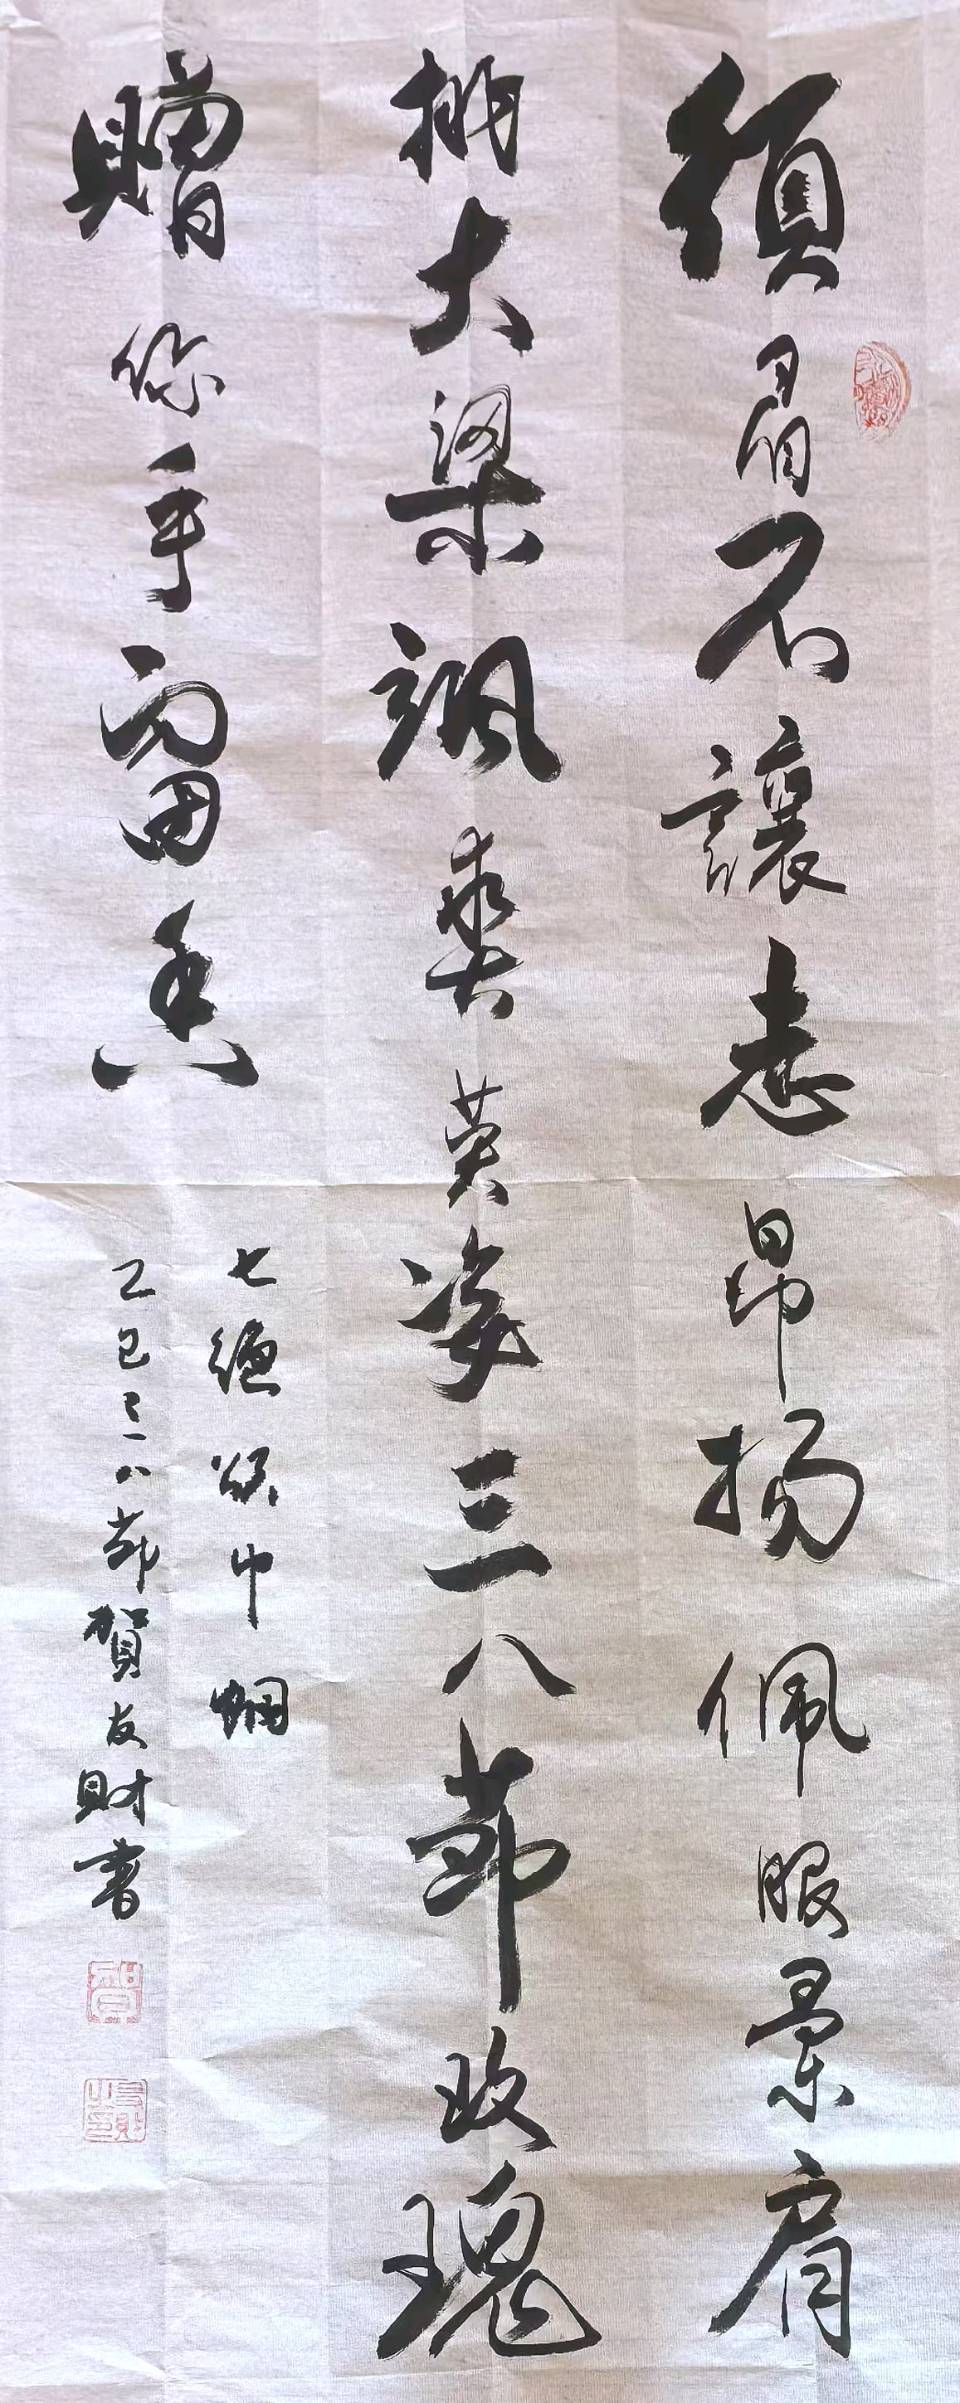 須眉不讓志昂揚佩服柔肩
挑大梁颯爽英姿三八節玫瑰
贈你手留香
七絕頌巾幗
乙巳三八節賀友財書
賀